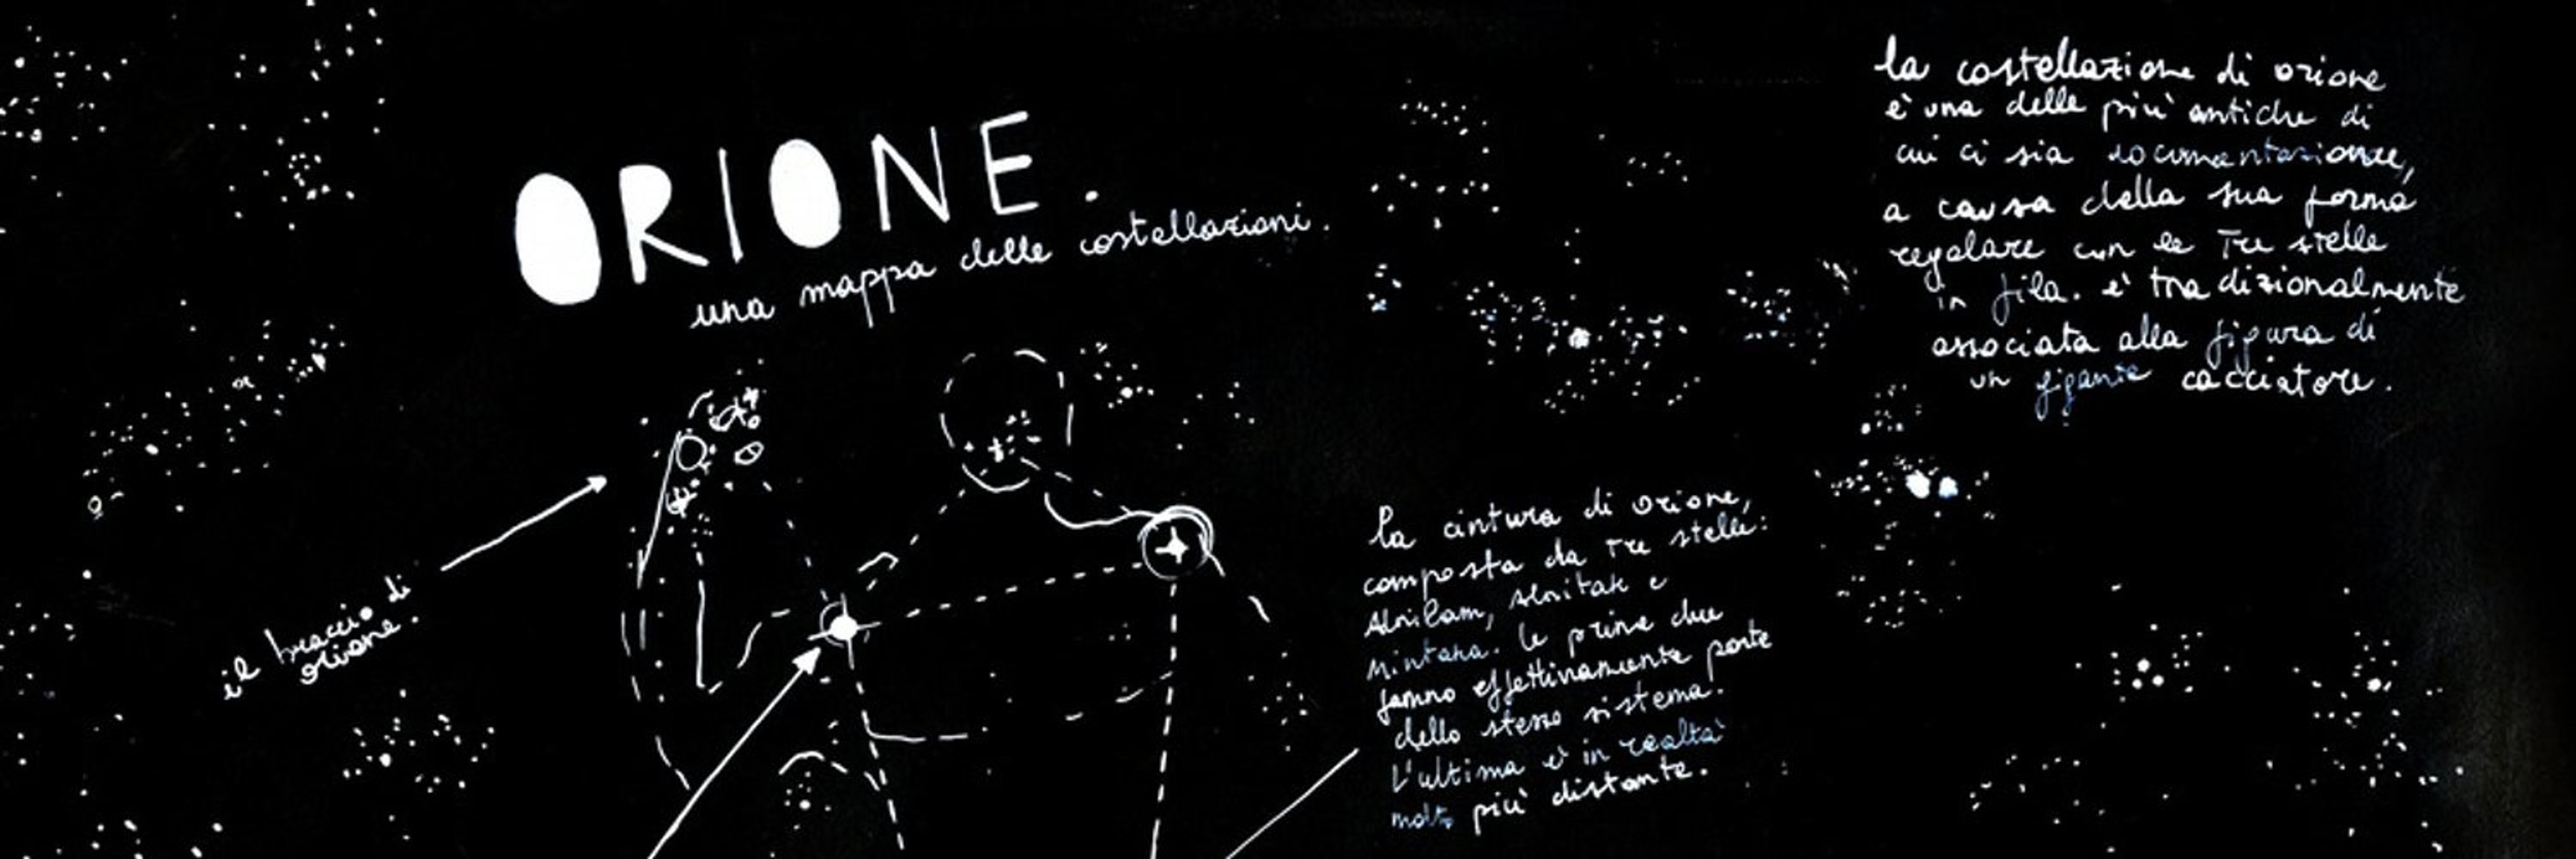 ORIONE.
una mappa delle costellazioni.
la costellazione di orione
è una delle più antiche di
cui ci sia documentazione,
a causa della sua forma
regolare con le Tre stelle
in fila. è tradizionalmente
associata alla figura di
un gigante cacciatore.
il braccio di
orione.
la cintura di orione,
composta da Tre stelle:
Alnilam, Alnitak e
Mintaka. le prime due
fanno effettivamente parte
dello stesso sistema.
L'ultima è in realtà
molto più distante.